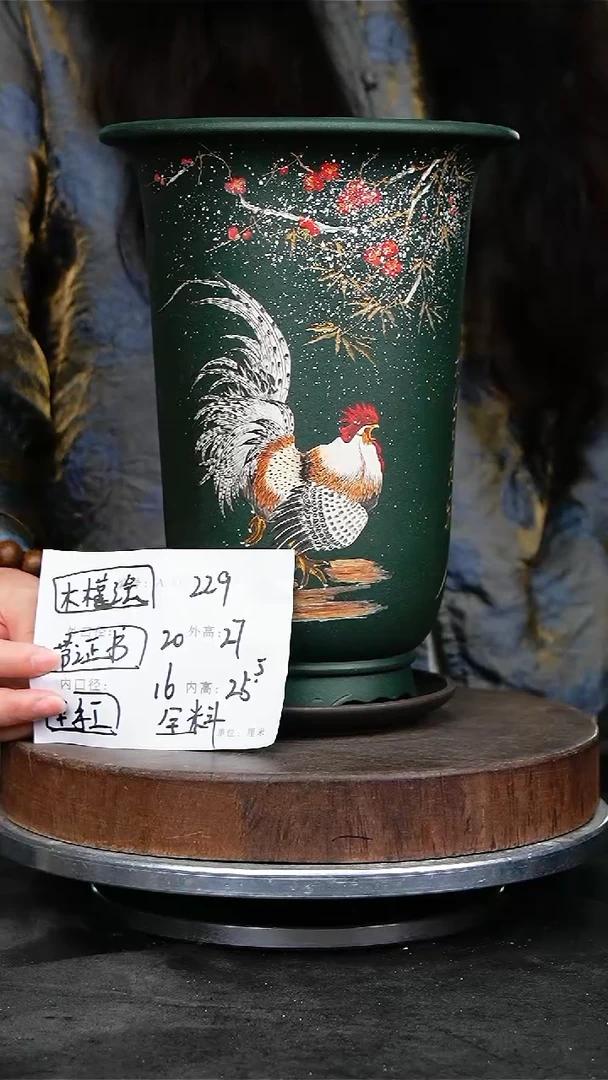 木槿绘 229
证书 20 外高: 27
内口径: 16 内高: 25.5
全料 单位: 厘米